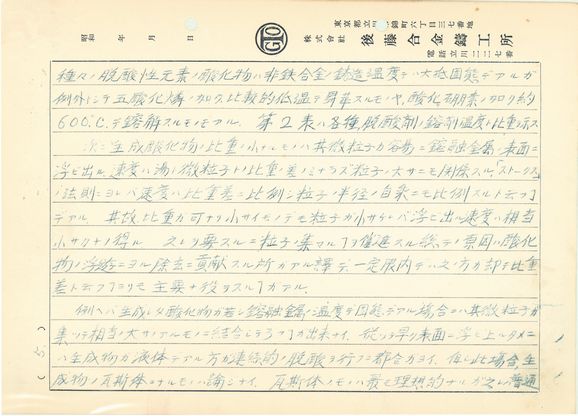 東京都立川市錦町六丁目三七番地
株式会社 後藤合金鋳工所
電話立川二二七番
昭和 年 月 日
GTO
種々ノ脱酸性元素ノ酸化物ハ非鉄合金ノ鋳造温度デハ大抵固態デアルガ
例外トシテ五酸化燐ノ如ク比較的低温デ昇華スルモノヤ、酸化硼素ノ如ク約
600℃デ鎔解スルモノモアル。 第2表ハ各種脱酸剤ノ鎔剤温度ト比重ヲ示ス
次ニ生成酸化物ノ比重ノ小ナルモノハ其微粒子ガ容易ニ鎔融金属ノ表面ニ
浮ビ出ル速度ハ湯ト微粒子トノ比重ノ差ノミナラズ粒子ノ大サニモ関係スル「ストークス」
ノ法則ニヨレバ速度ハ比重差ニ比例シ粒子ノ半径ノ自乗ニモ比例スルト云フコト
デアル 其故比重ガ可ナリ小サイモノデモ粒子ガ小サケレバ浮ビ出ル速度ハ相当
小サクナリ得ル 又ハ要スルニ粒子ノ集マルコトヲ催進スル総テノ原因ハ酸化
物ノ浮游ニヨル除去ニ貢献スル所ガアル譯デ一定限内デハ此ノ方ガ却テ比重
差ト云フコトヨリモ主要ナ役ヲスルコトガアル
例ヘバ生成シタ酸化物ガ若シ鎔融金属ノ温度デ固態デアル場合ニハ其微粒子ガ
集ッテ相当ノ大サノアルモノニ結合シテシマフコトガ出来ナイ、従ッテ早ク表面ニ浮ビ上ルタメニ
ハ生成物ガ液体デアル方ガ集結的ノ脱酸ヲ行フニ都合ガヨイ、但シ此場合生
成物ノ瓦斯体ノナルモノハ論ジナイ、瓦斯体ノモノハ最モ理想的ナルガ之レ普通